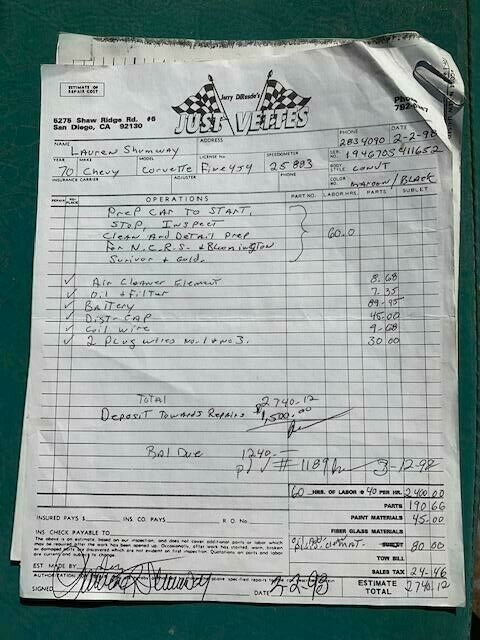 ESTIMATE OF
REPAIR COST
Jerry DiRosole's
JUST VETTES
5275 Shaw Ridge Rd. #6
San Diego, CA 92130
NAME ADDRESS PHONE DATE
Lauren Shumway 283 4090 2-2-98
YEAR MAKE MODEL LICENSE No. SPEEDOMETER
70 Chevy Corvette Fire454 25883 194670S411652
BODY STYLE CONVT
INSURANCE CARRIER ADJUSTER PHONE COLOR NO. Maroon/Black
REPAIR OPERATIONS PART NO. LABOR HRS. PARTS SUBLET
Prep Car to Start,
Stop, Inspect
Clean And Detail Prep 60.0
For N.C.R.S. & Bloomington
Surivor & Gold.
✓ Air Cleaner Element 8.68
✓ Oil & Filter 7.35
✓ Battery 89.95
✓ Dist-Cap 45.00
✓ Coil Wire 9.68
✓ 2 Plug Wires No. 1 and 3. 30 00
Total 2740.12
Deposit Towards Repairs 1,500.00
Bal Due 1240- # 1189 3-12-98
60 HRS. OF LABOR @ 40 PER HR. 2400 00
PARTS 190 66
INSURED PAYS $ INS. CO. PAYS R.O. No. PAINT MATERIALS 45.00
FIBER GLASS MATERIALS
INS CHECK PAYABLE TO
SUBLET 80 00
The above is an estimate, based on our inspection, and does not cover additional parts or labor which
may be required after the work has been opened up. Occasionally, after work has started, worn, broken
or damaged parts are discovered which are not evident on first inspection. Quotations on parts and labor
are current and subject to change.
TOW BILL
EST. MADE BY SALES TAX 24.46
AUTHORIZATION
SIGNED DATE 2-2-98 ESTIMATE TOTAL 2740.12